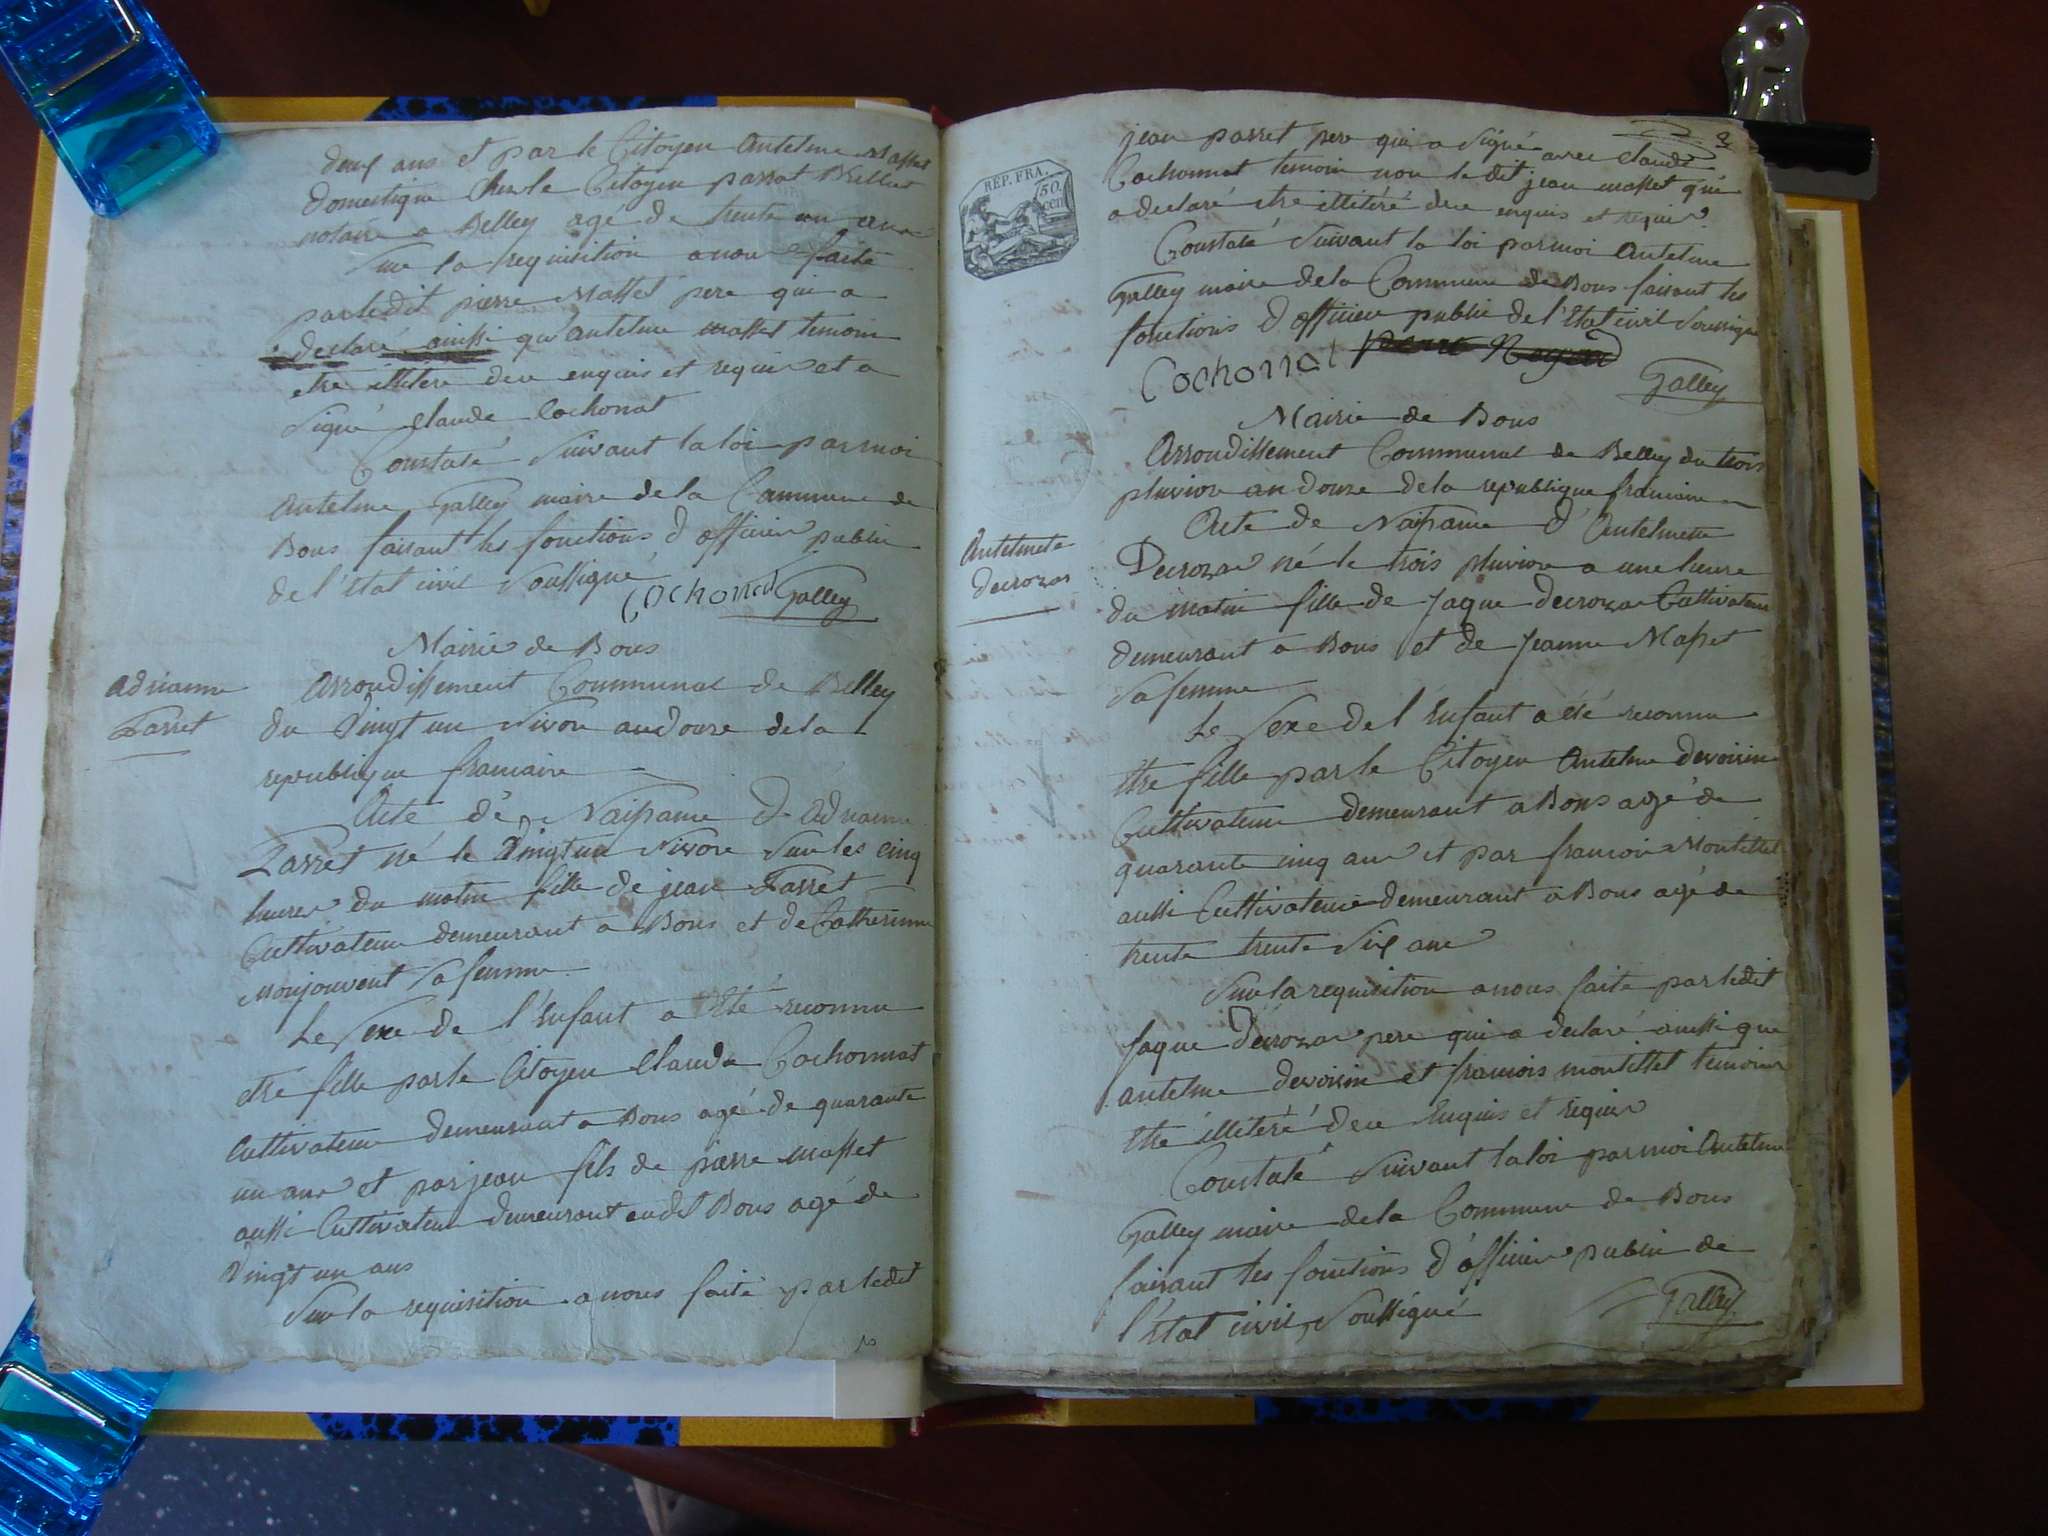 deux ans et par le Citoyen Antelme Masset
domestique chez le Citoyen passot Brillat
notaire a Belley agé de trente un ans
Sur la requisition a nous faite
par ledit pierre Masset pere qui a
declaré ainssi qu'antelme masset temoin
etre illiteré deu enquis et requis et a
Signé Claude Cochonat
Constaté Suivant la loi par moi
Antelme Galley maire de la Commune de
Bons faisant les fonctions d'officier public
de l'Etat civil Soussigné
Cochonat Galley
Mairie de Bons
adrianne
Parret
Arrondissement Communal de Belley
du Vingt un Nivose an douze de la
republique francaise
Acte de Naissance d'Adrianne
Parret né le Vingt un Nivose Sur les cinq
heures du matin fille de jean Parret
Cultivateur demeurant a Bons et de Catherinne
Monjouvent Sa femme
Le Sexe de l'Enfant a Eté reconnu
etre fille par le Citoyen Claude Cochonnat
Cultivateur demeurant a Bons agé de quarante
un ans et par jean fils de pierre Masset
aussi Cultivateur demeurant audit Bons agé de
Vingt un ans
Sur la requisition a nous faite par ledit
jean parret pere qui a Signé avec Claude
Cochonnat temoin non le dit jean masset qui
a declaré etre illiteré deu enquis et requis
Constaté Suivant la loi par moi Antelme
Galley maire de la Commune de Bons faisant les
fonctions d'officier public de l'Etat civil Soussigné
REP. FRA.
50
cen
Cochonnat
Galley
Mairie de Bons
Arrondissement Communal de Belley du trois
pluviose an douze de la republique francaise
Antelmete
Decrozas
Acte de Naissance d'Antelmette
Decrozas né le trois pluviose a une heure
du matin fille de Jaque Decrozas Cultivateur
demeurant a Bons et de Jeanne Masset
Sa femme
Le Sexe de l'Enfant a été reconnu
Etre fille par le Citoyen Antelme devoisin
Cultivateur demeurant a Bons agé de
quarante cinq ans et par francois Montillet
aussi Cultivateur demeurant a Bons agé de
trente trente Six ans
Sur la requisition a nous faite par ledit
Jaque Decrozas pere qui a declaré ainssi que
antelme devoisin et francois montillet temoins
Etre illiteré deu Enquis et requis
Constaté Suivant la loi par moi Antelme
Galley maire de la Commune de Bons
faisant les fonctions d'officier public de
l'Etat civil Soussigné
Galley